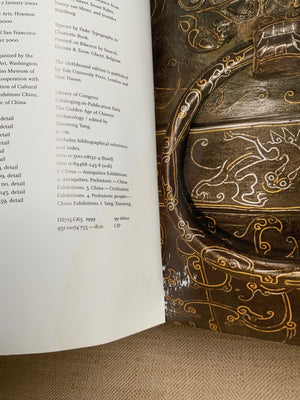 2 January 2000
Arts, Houston
2000
of San Francisco
ber 2000
ganized by the
Art, Washington,
son Museum of
cooperation with
ation of Cultural
Exhibitions China,
China.
detail
detail
detail
detail
detail
detail
detail
59, detail
Nancy van Meter, and Jennifer
Wahlberg
Typeset by Duke Typography in
Charlotte Book.
Printed on Biberest by Snoeck,
Ducaju & Zoon, Ghent, Belgium.
The clothbound edition is published
by Yale University Press, London and
New Haven.
Library of Congress
Cataloging-in-Publication Data
The Golden Age of Chinese
Archaeology / edited by
Xiaoneng Yang.
p. cm.
Includes bibliographical references
and index.
1. China – Antiquities Exhibitions.
2. Antiquities, Prehistoric – China
Exhibitions. 3. China – Civilization
Exhibitions. 4. Prehistoric peoples –
China Exhibitions. I. Yang, Xiaoneng
DS715.G65 1999
CIP